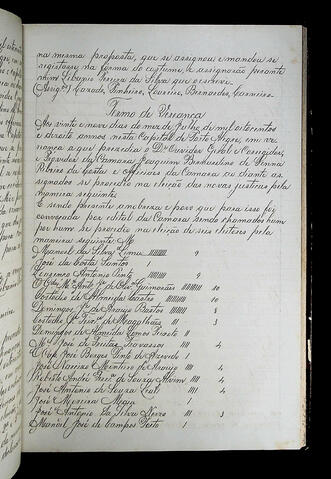 na mesma proposta, que se assignou e mandou se
registasse na forma do costume, e assignarão perante
mim Silverio Pereira da Silva que o escrevi.
Carado, Pinheiro, Loureiro, Bernardes, Carneiro.
Termo de Vereança
Aos vinte e nove dias do mez de Julho de mil oitocentos
e dezoito annos nesta Capital de Porto Alegre, em ve-
reança a que presedio o Dr. Ouvidor Geral e Corregedor,
e Provedor da Camara Joaquim Bernardino de Senna
Ribeiro da Costa e officiaes da Camara ao diante as-
signados se procedeo na eleição das novas justiças pela
maneira seguinte.
E sendo presente a nobreza e povo que para isso foi
convocada por edital da Camara sendo chamados hum
por hum se procedeo na eleição de seis eleitores pela
maneira seguinte
Manoel da Silva Lima IIIIIIIII 9
José da Costa Santos I
Antonio Pinto 9
Guimarães 10
Custodio de Almeida Castro 10
Domingos de Araujo Bastos 8
Custodio de Magalhães III 3
Domingos de Almeida Lemos Peixoto II
José de Freitas Travassos IIII 4
José Borges Pinto de Azevedo I
José Monteiro de Araujo IIII 4
de Souza IIII 4
José Antonio de Souza Leal IIII 4
José Moreira Maya I
José Antonio da Silva Neves III 3
Manoel José de Campos I